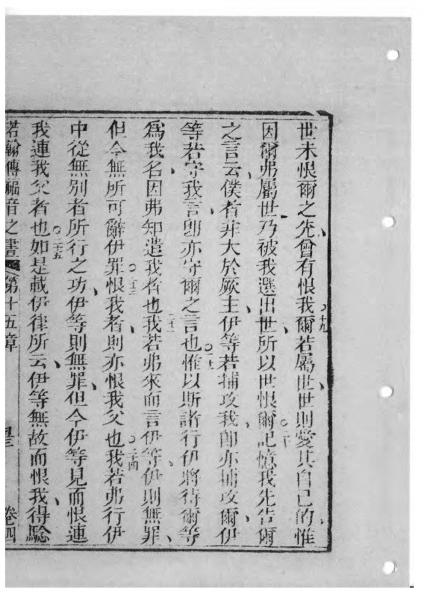 世未恨爾之先曾有恨我爾若屬世世則愛其自己的惟
因爾弗屬世乃被我選出世所以世恨爾記憶我先告爾
之言云僕者非大於厥主伊等若捕攻我卽亦捕攻爾伊
等若守我言卽亦守爾之言也惟以斯諸行伊將待爾等
爲我名因弗知遣我者也我若弗來而言伊等伊則無罪
但今無所可辭伊罪恨我者則亦恨我父也我若弗行伊
中從無別者所行之功伊等則無罪但今伊等見而恨連
我連我父者也如是載伊律所云伊等無故而恨我得騐
若翰傳福音之書 第十五章 卷四
十九
二十
二十一
二十二
二十三
二十四
二十五